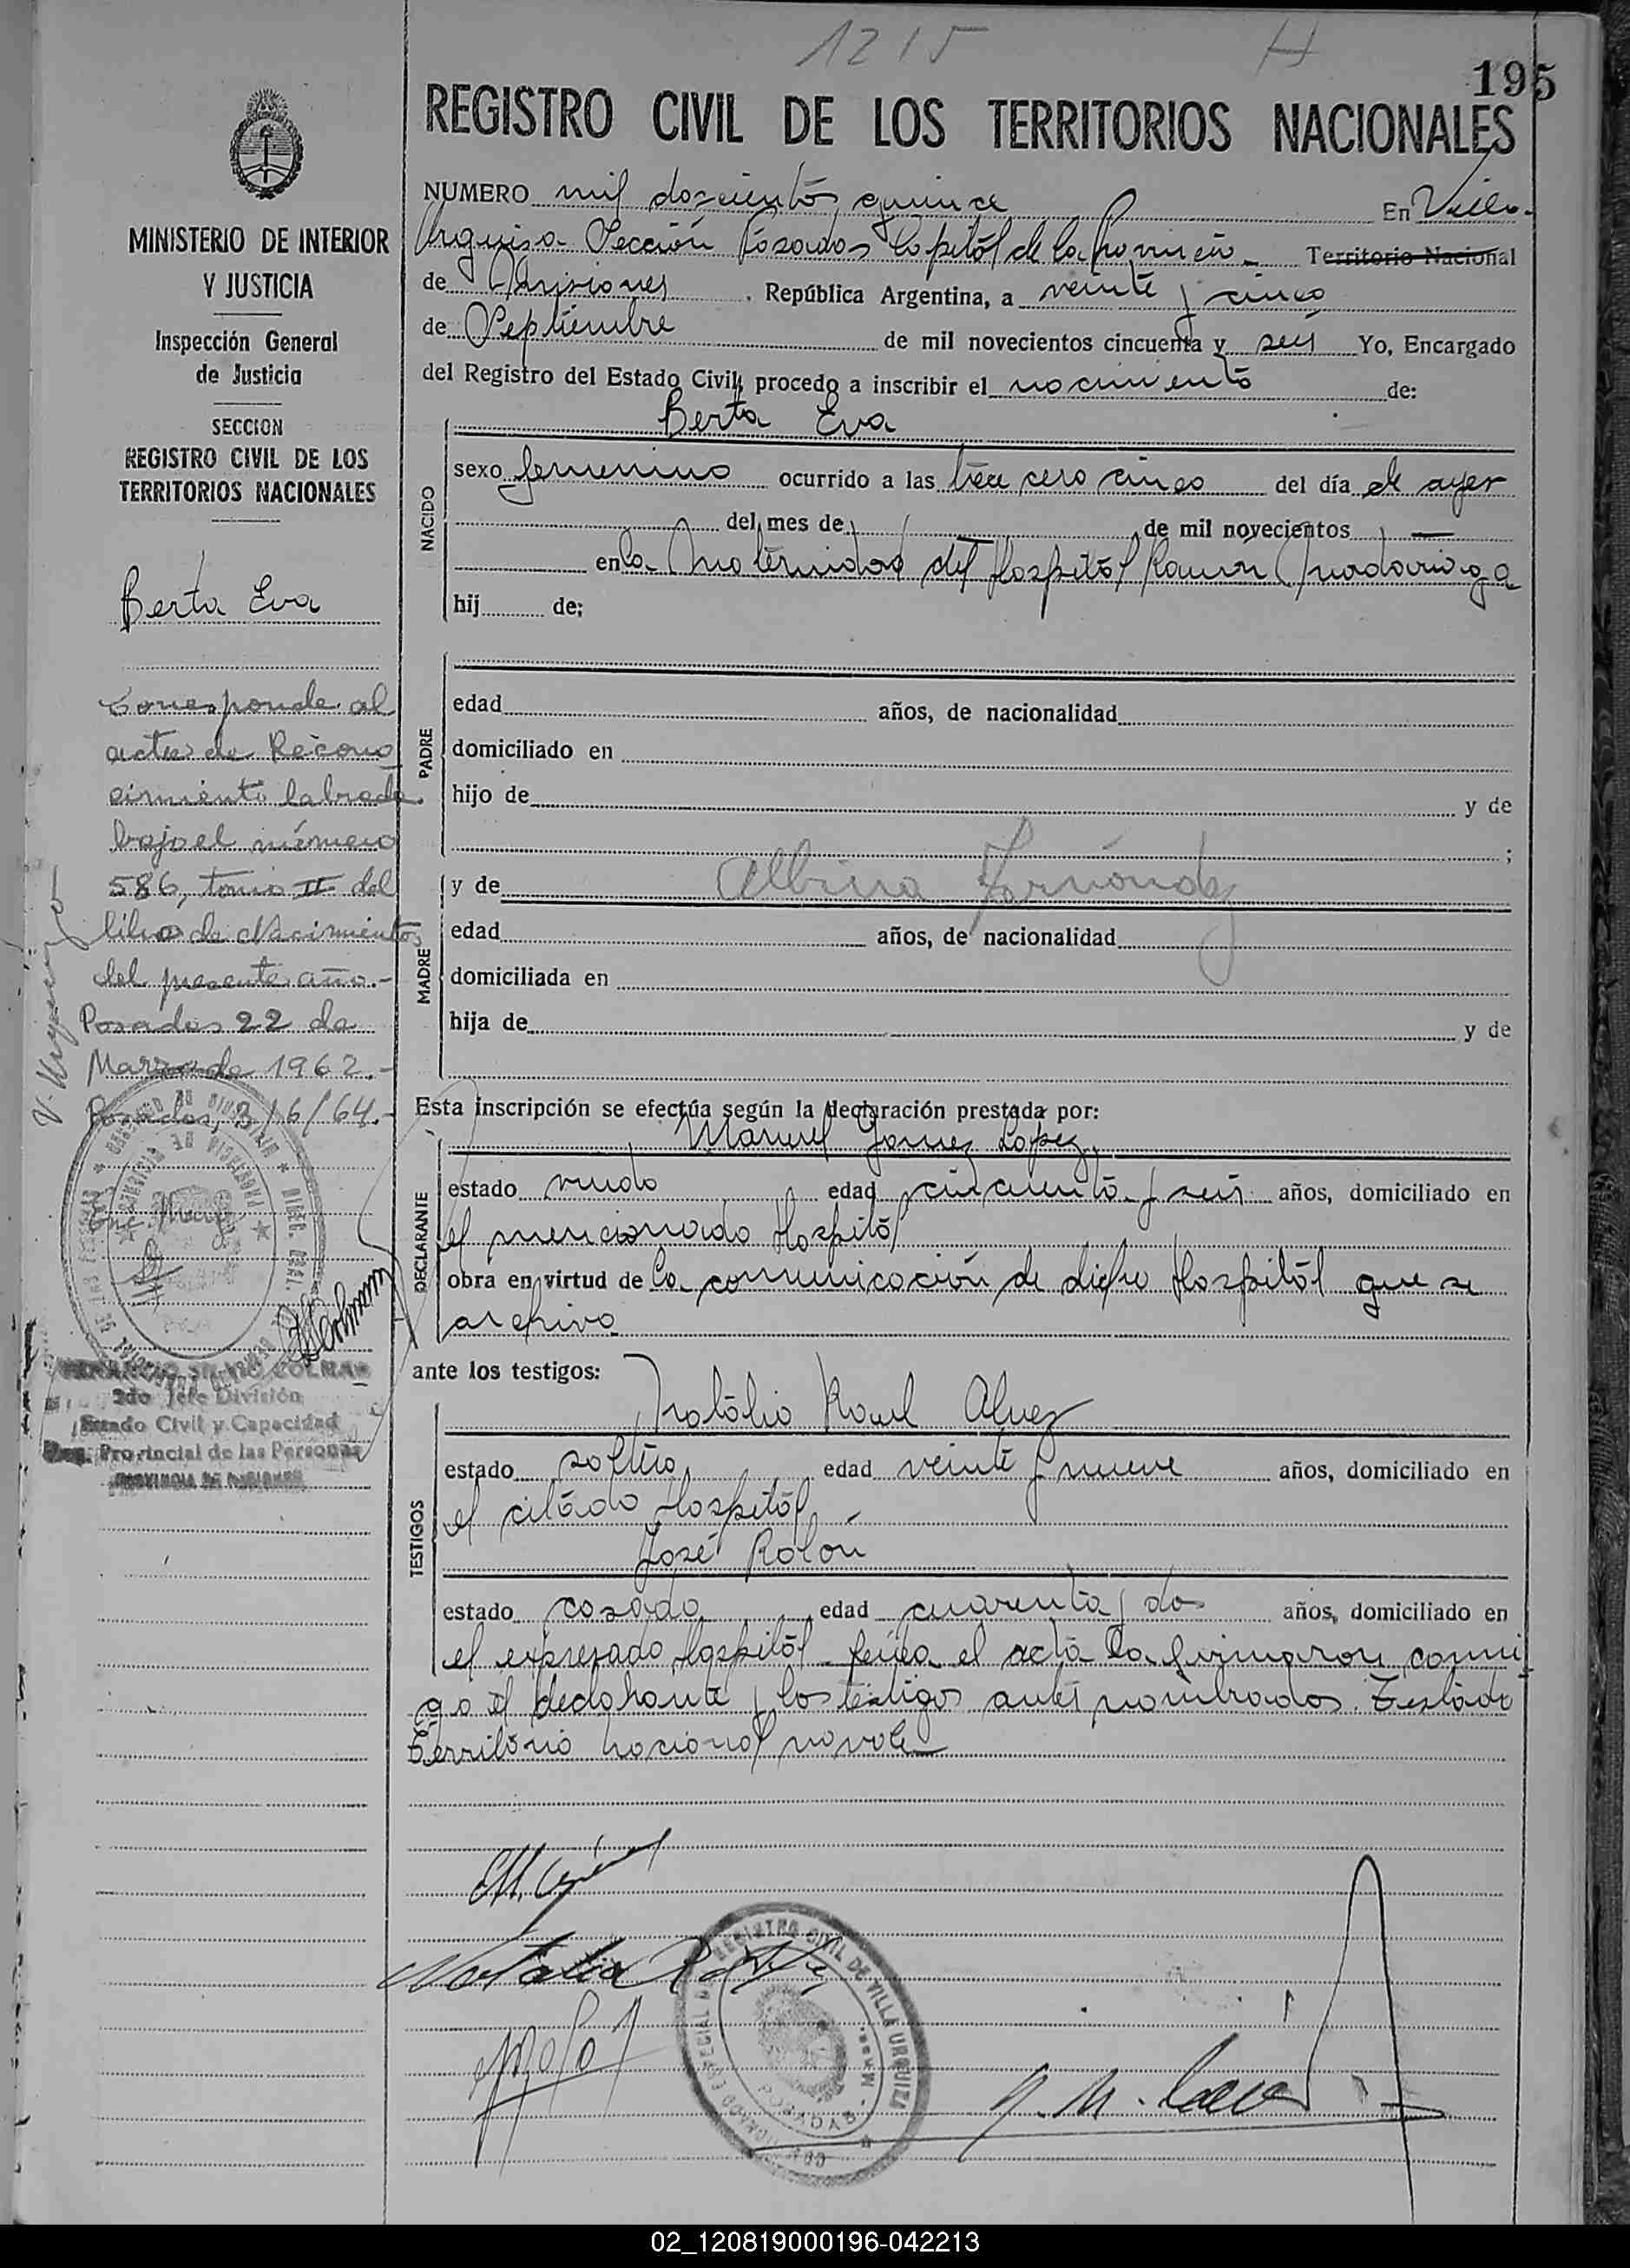 1215 H
195
REGISTRO CIVIL DE LOS TERRITORIOS NACIONALES
NUMERO mil doscientos quince En Villa
Urquiza Sección Posadas Capital de la Provincia Territorio Nacional
de Misiones República Argentina, a veinte y cinco
de Septiembre de mil novecientos cincuenta y seis Yo, Encargado
del Registro del Estado Civil, procedo a inscribir el nacimiento de:
NACIDO
Berta Eva
sexo femenino ocurrido a las trece cero cinco del día de ayer
del mes de de mil novecientos
en la Maternidad del Hospital Ramón Madariaga
hij de;
PADRE
edad años, de nacionalidad
domiciliado en
hijo de y de
;
MADRE
y de Albina Fernández
edad años, de nacionalidad
domiciliada en
hija de y de
Esta inscripción se efectúa según la declaración prestada por:
DECLARANTE
Manuel Gomez Lopez
estado viudo edad cincuenta y seis años, domiciliado en
el mencionado Hospital
obra en virtud de la comunicación de dicho Hospital que se
archiva
ante los testigos:
TESTIGOS
Natalio Raul Alvez
estado soltero edad veinte y nueve años, domiciliado en
el citado Hospital
José Rolón
estado casado edad cuarenta y dos años, domiciliado en
el expresado Hospital leída el acta la firmaron conmi
go el declarante y los testigos antes nombrados. Testado
Territorio nacional no vale
MINISTERIO DE INTERIOR
Y JUSTICIA
Inspección General
de Justicia
SECCION
REGISTRO CIVIL DE LOS
TERRITORIOS NACIONALES
Berta Eva
Corresponde al
acta de Recono
cimiento labrada
bajo el número
586, tomo II del
libro de Nacimientos
del presente año.-
Posadas 22 de
Marzo de 1962.-
Posadas, 3/6/64.-
2do Jefe División
Estado Civil y Capacidad
Reg. Provincial de las Personas
PROVINCIA DE MISIONES
REGISTRO CIVIL DE VILLA URQUIZA
POSADAS
02_120819000196-042213